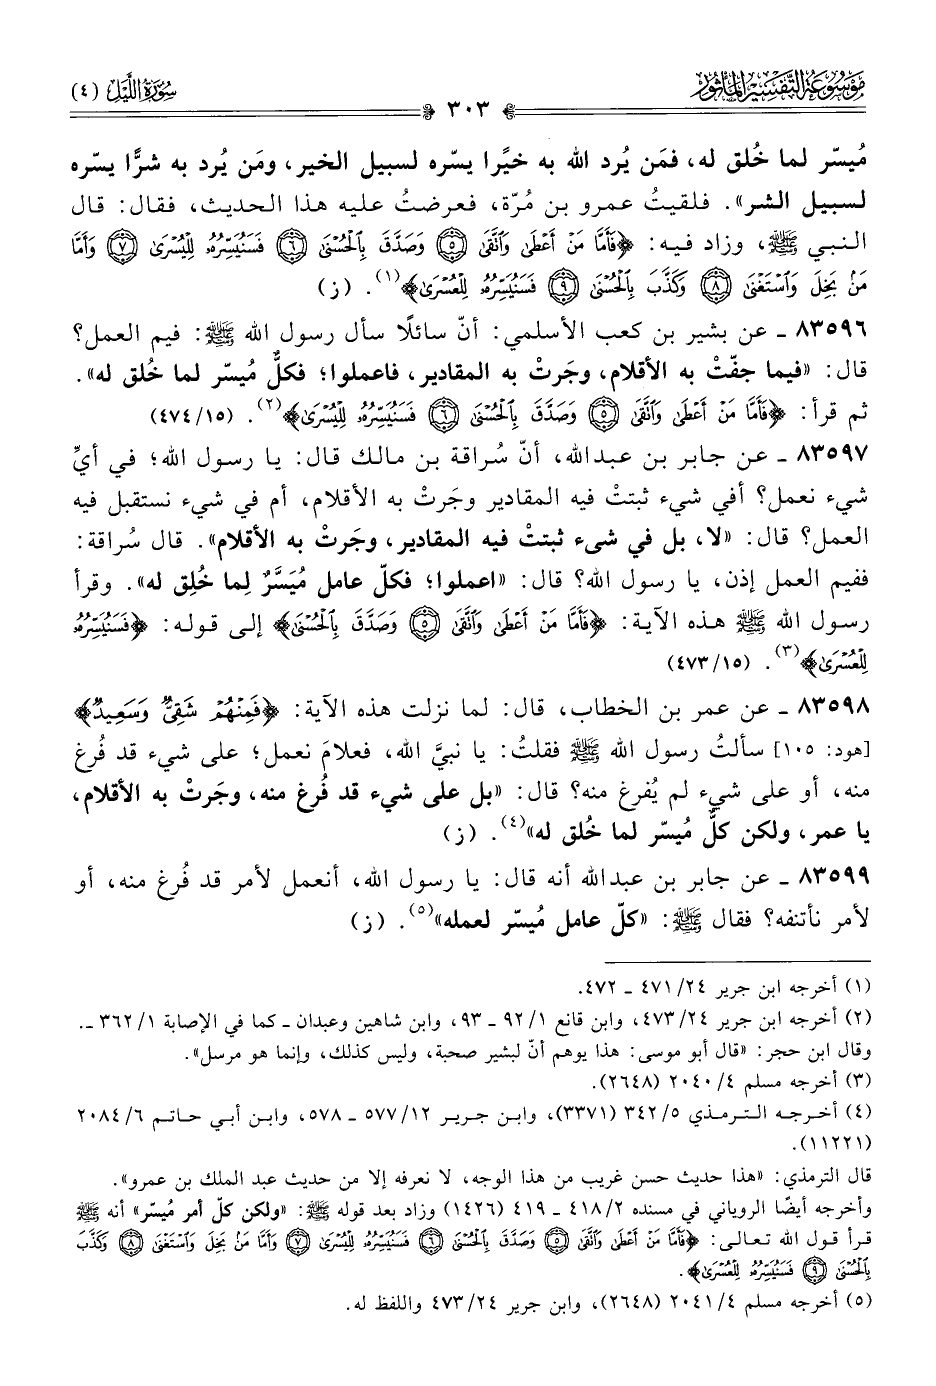 مَوْسُوعَةُ التَّفْسِيرِ المَأْثُورِ
❁ ٣٠٣ ❁
سُورَةُ اللَّيْلِ (٤)
مُيسّر لما خُلق له، فمَن يُرد الله به خيًرا يسّره لسبيل الخير، ومَن يُرد به شرًّا يسّره
لسبيل الشر». فلقيتُ عمرو بن مُرّة، فعرضتُ عليه هذا الحديث، فقال: قال
النبي ﷺ، وزاد فيه: ﴿فَأَمَّا مَنْ أَعْطَىٰ وَٱتَّقَىٰ ۝٥ وَصَدَّقَ بِٱلْحُسْنَىٰ ۝٦ فَسَنُيَسِّرُهُۥ لِلْيُسْرَىٰ ۝٧ وَأَمَّا
مَنۢ بَخِلَ وَٱسْتَغْنَىٰ ۝٨ وَكَذَّبَ بِٱلْحُسْنَىٰ ۝٩ فَسَنُيَسِّرُهُۥ لِلْعُسْرَىٰ﴾(١). (ز)
٨٣٥٩٦ ـ عن بشير بن كعب الأسلمي: أنّ سائلًا سأل رسول الله ﷺ: فيم العمل؟
قال: «فيما جفّتْ به الأقلام، وجَرتْ به المقادير، فاعملوا؛ فكلٌّ مُيسّر لما خُلق له».
ثم قرأ: ﴿فَأَمَّا مَنْ أَعْطَىٰ وَٱتَّقَىٰ ۝٥ وَصَدَّقَ بِٱلْحُسْنَىٰ ۝٦ فَسَنُيَسِّرُهُۥ لِلْيُسْرَىٰ﴾(٢). (٤٧٤/١٥)
٨٣٥٩٧ ـ عن جابر بن عبدالله، أنّ سُراقة بن مالك قال: يا رسول الله؛ في أيِّ
شيء نعمل؟ أفي شيء ثبتتْ فيه المقادير وجَرتْ به الأقلام، أم في شيء نستقبل فيه
العمل؟ قال: «لا، بل في شيء ثبتتْ فيه المقادير، وجَرتْ به الأقلام». قال سُراقة:
ففيم العمل إذن، يا رسول الله؟ قال: «اعملوا؛ فكلّ عامل مُيَسَّرٌ لِما خُلِق له». وقرأ
رسول الله ﷺ هذه الآية: ﴿فَأَمَّا مَنْ أَعْطَىٰ وَٱتَّقَىٰ ۝٥ وَصَدَّقَ بِٱلْحُسْنَىٰ﴾ إلى قوله: ﴿فَسَنُيَسِّرُهُۥ
لِلْعُسْرَىٰ﴾(٣). (٤٧٣/١٥)
٨٣٥٩٨ ـ عن عمر بن الخطاب، قال: لما نزلت هذه الآية: ﴿فَمِنْهُمْ شَقِىٌّ وَسَعِيدٌ﴾
[هود: ١٠٥] سألتُ رسول الله ﷺ فقلتُ: يا نبيَّ الله، فعلامَ نعمل؛ على شيء قد فُرغ
منه، أو على شيء لم يُفرغ منه؟ قال: «بل على شيء قد فُرغ منه، وجَرتْ به الأقلام،
يا عمر، ولكن كلٌّ مُيسّر لما خُلق له»(٤). (ز)
٨٣٥٩٩ ـ عن جابر بن عبدالله أنه قال: يا رسول الله، أنعمل لأمر قد فُرغ منه، أو
لأمر نأتنفه؟ فقال ﷺ: «كلّ عامل مُيسّر لعمله»(٥). (ز)
(١) أخرجه ابن جرير ٤٧١/٢٤ ـ ٤٧٢.
(٢) أخرجه ابن جرير ٤٧٣/٢٤، وابن قانع ٩٢/١ ـ ٩٣، وابن شاهين وعبدان ـ كما في الإصابة ٣٦٢/١ ـ.
وقال ابن حجر: «قال أبو موسى: هذا يوهم أنّ لبشير صحبة، وليس كذلك، وإنما هو مرسل».
(٣) أخرجه مسلم ٢٠٤٠/٤ (٢٦٤٨).
(٤) أخرجه الترمذي ٣٤٢/٥ (٣٣٧١)، وابن جرير ٥٧٧/١٢ ـ ٥٧٨، وابن أبي حاتم ٢٠٨٤/٦
(١١٢٢١).
قال الترمذي: «هذا حديث حسن غريب من هذا الوجه، لا نعرفه إلا من حديث عبد الملك بن عمرو».
وأخرجه أيضًا الروياني في مسنده ٤١٨/٢ ـ ٤١٩ (١٤٢٦) وزاد بعد قوله ﷺ: «ولكن كلّ أمر مُيسّر» أنه ﷺ
قرأ قول الله تعالى: ﴿فَأَمَّا مَنْ أَعْطَىٰ وَٱتَّقَىٰ ۝٥ وَصَدَّقَ بِٱلْحُسْنَىٰ ۝٦ فَسَنُيَسِّرُهُۥ لِلْيُسْرَىٰ ۝٧ وَأَمَّا مَنۢ بَخِلَ وَٱسْتَغْنَىٰ ۝٨ وَكَذَّبَ
بِٱلْحُسْنَىٰ ۝٩ فَسَنُيَسِّرُهُۥ لِلْعُسْرَىٰ﴾.
(٥) أخرجه مسلم ٢٠٤١/٤ (٢٦٤٨)، وابن جرير ٤٧٣/٢٤ واللفظ له.